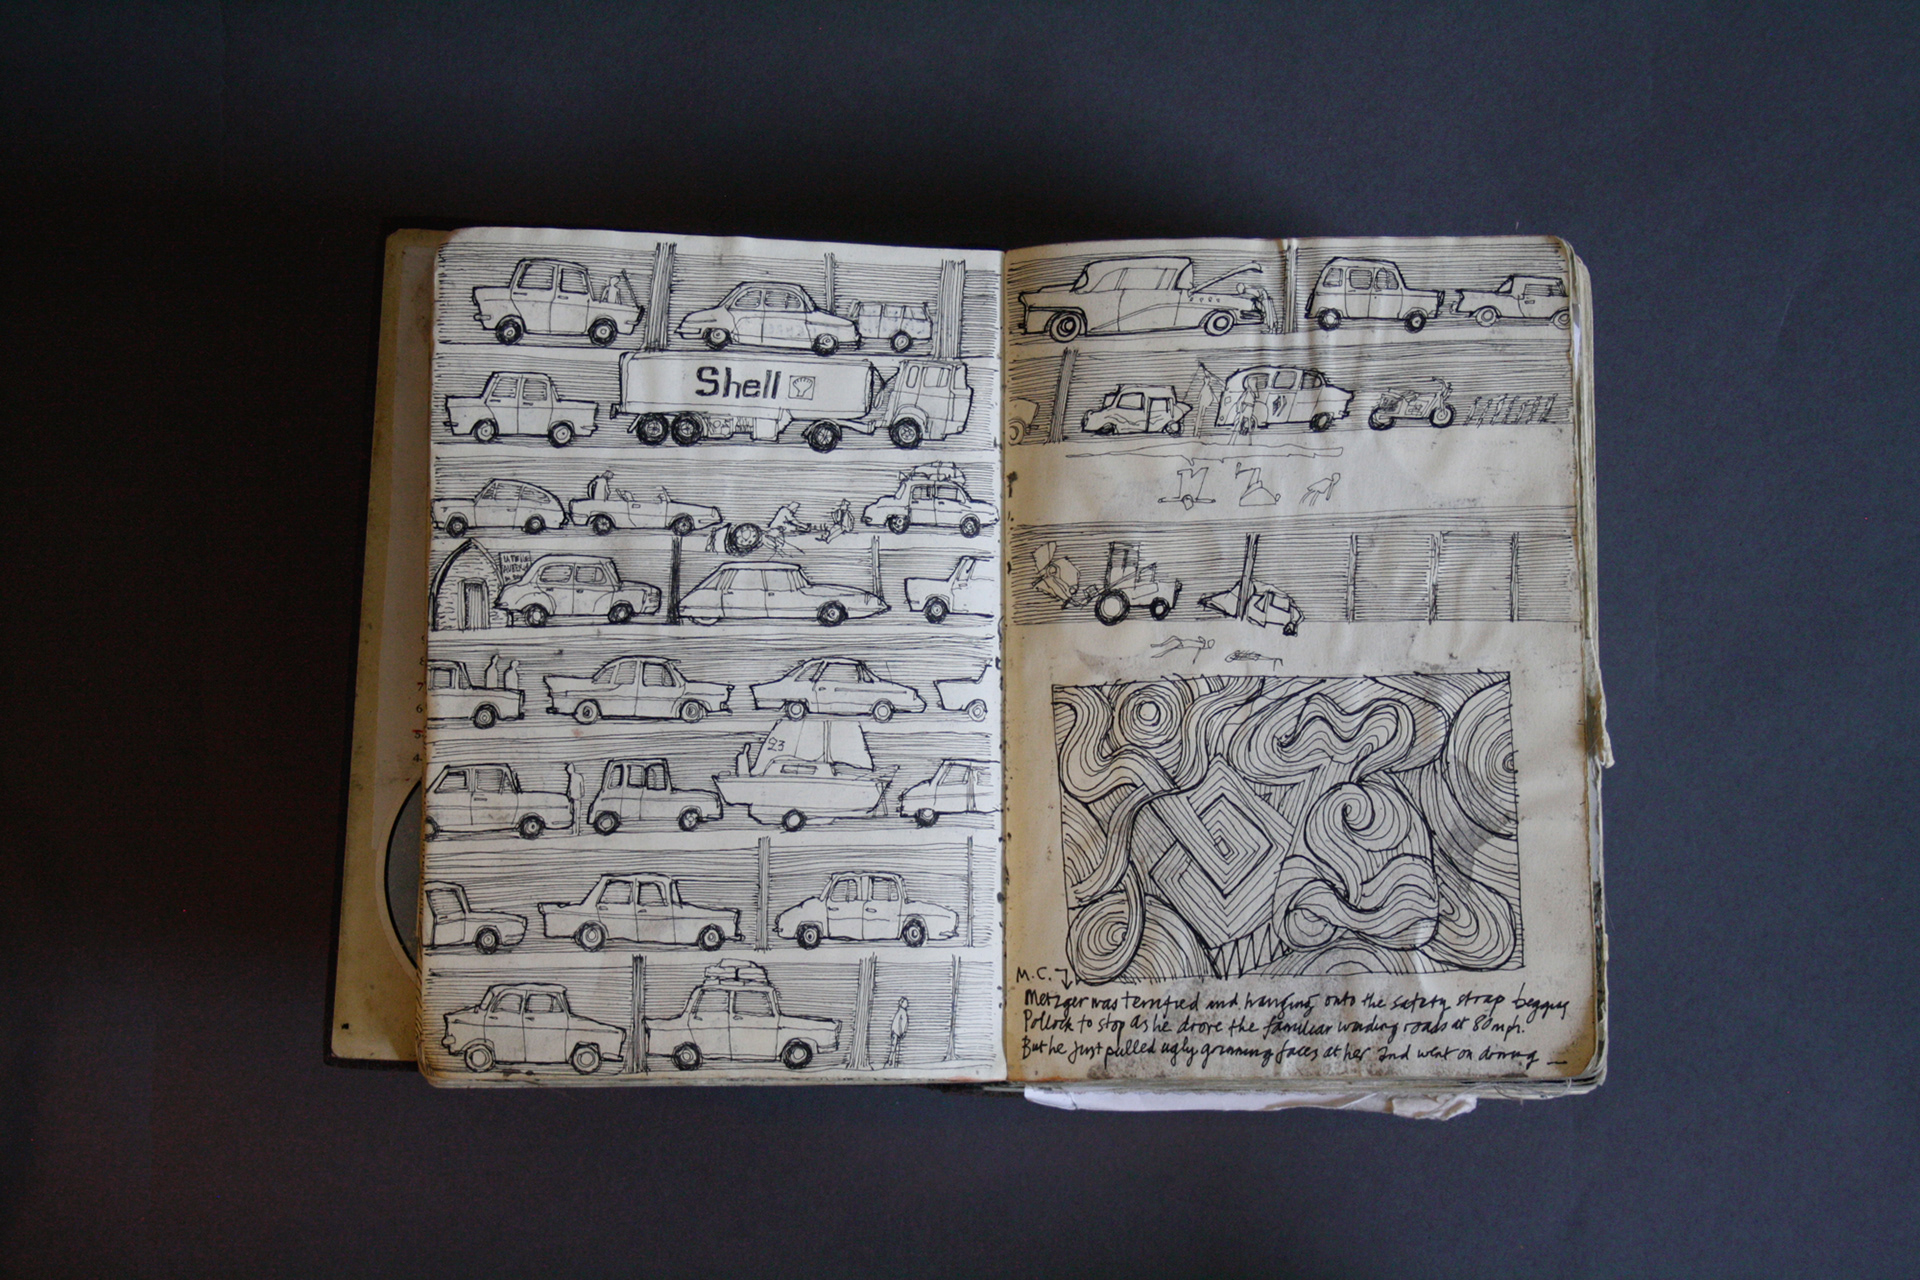 Shell
£3
M.C.
Metzger was terrified and hanging onto the safety strap begging
Pollock to stop as he drove the familiar winding roads at 80 mph.
But he just pulled ugly grinning faces at her and went on driving —